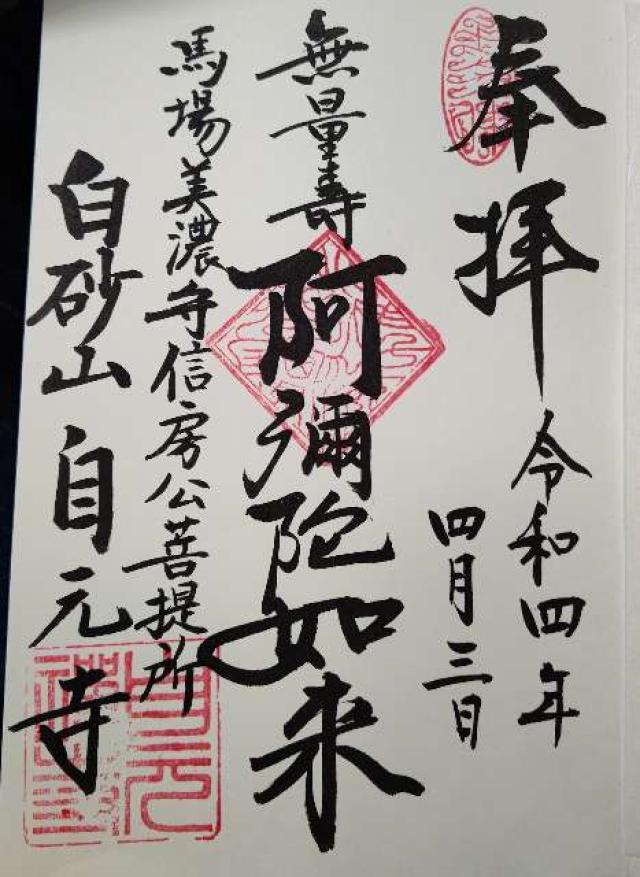 奉拝
令和四年
四月三日
無量壽
阿彌陀如来
馬場美濃守信房公菩提所
白砂山 自元寺